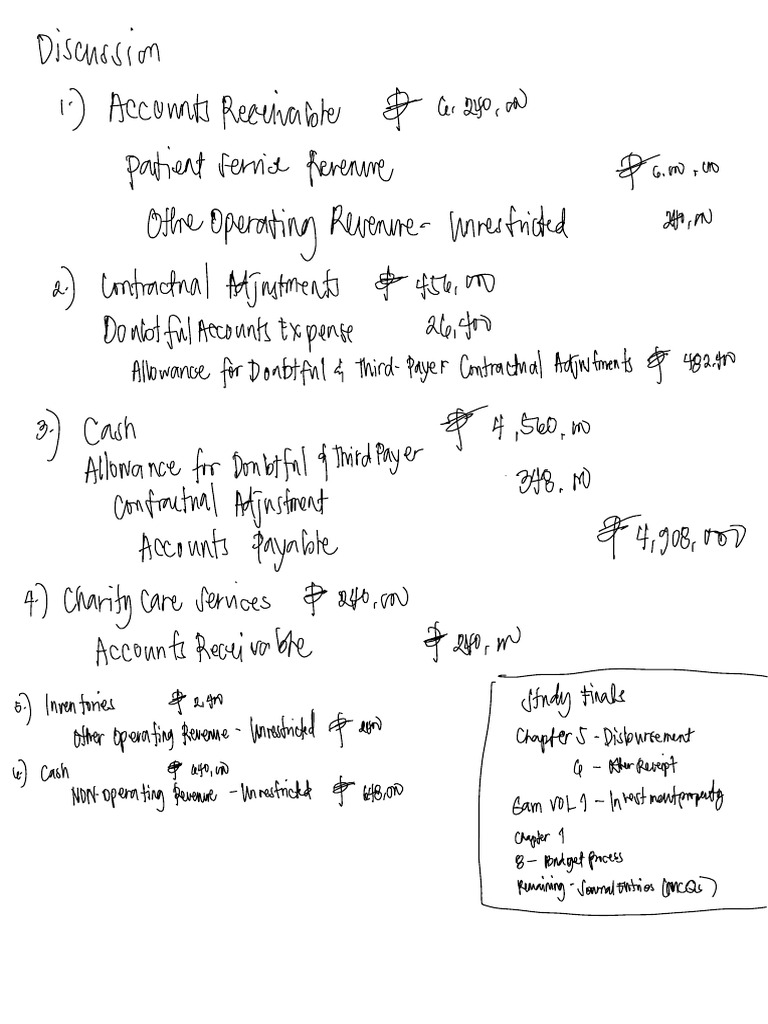 Discussion
1.) Accounts Receivable ₱ 6,240,000
Patient Service Revenue ₱ 6,000,000
Othre Operating Revenue - Unrestricted 240,000
2.) Contractual Adjustments ₱ 456,000
Doubtful Accounts Expense 26,400
Allowance for Doubtful & Third-Payer Contractual Adjustments ₱ 482,400
3.) Cash ₱ 4,560,000
Allowance for Doubtful & Third Payer 348,000
Contractual Adjustment
Accounts Payable ₱ 4,908,000
4.) Charity Care Services ₱ 240,000
Accounts Receivable ₱ 240,000
5.) Inventories ₱ 2,400
Other Operating Revenue - Unrestricted ₱ 2400
6.) Cash ₱
Non-Operating Revenue - Unrestricted ₱ 648,000
Study Finals
Chapter 5 - Disbursement
6 - Other Receipt
Gam VOL 1 - Investment property
Chapter 9
8 - Budget Process
Remaining - Journal Entries (MCQs)